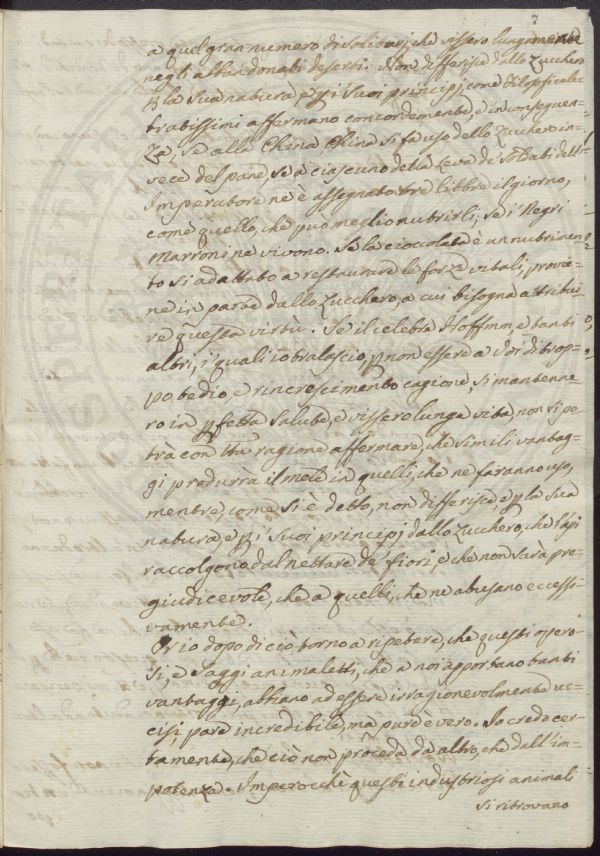 7
a quel gran numero di Solitarj, che vissero lungamente
negli abbandonati deserti. Non differisce dallo Zucchero
la sua natura, e i suoi principj, come
tratissimi affermano concordemente, e in conseguen-
za, se alla China China si fa uso dello Zucchero in-
vece del pane, se a ciascuno della Leva de' Soldati dell'
Imperatore ne è assegnato tre libbre il giorno,
come quello, che può meglio nutrirli, se i' Negri
Marroni ne vivono. Se la cioccolata è un nutrimen-
to sì adattato a restaurare le forze vitali, provie-
ne in parte dallo Zucchero, a cui bisogna attribui-
re questa virtù. Se il celebre Hoffmn, e tanti
altri, i' quali io tralascio, p non essere a Voi di trop-
po tedio, e rincrescimento cagione, si mantenne-
ro in pfetta salute, e vissero lunga vita, non si po-
trà con tta ragione affermare, che simili vantag-
gi produrrà il mele in quelli, che ne faranno uso,
mentre, come si è detto, non differisce p la sua
natura, e p i' suoi principj dallo Zucchero, che l'api
raccolgono dal nettare de' fiori, e che non sarà pre-
giudicevole, che a quelli, che ne abusano eccessi-
vamente.
Or io dopo di ciò torno a ripetere, che questi operosi
si, e saggi animaletti, che a noi apportano tanti
vantaggi, abbiano ad essere irragionevolmente uc-
cisi, pare incredibile, ma pure è vero. Io credo cer-
tamente, che ciò non proceda da altro, che dall'im-
potenza. Imperocchè questi industriosi animali
si ritrovano